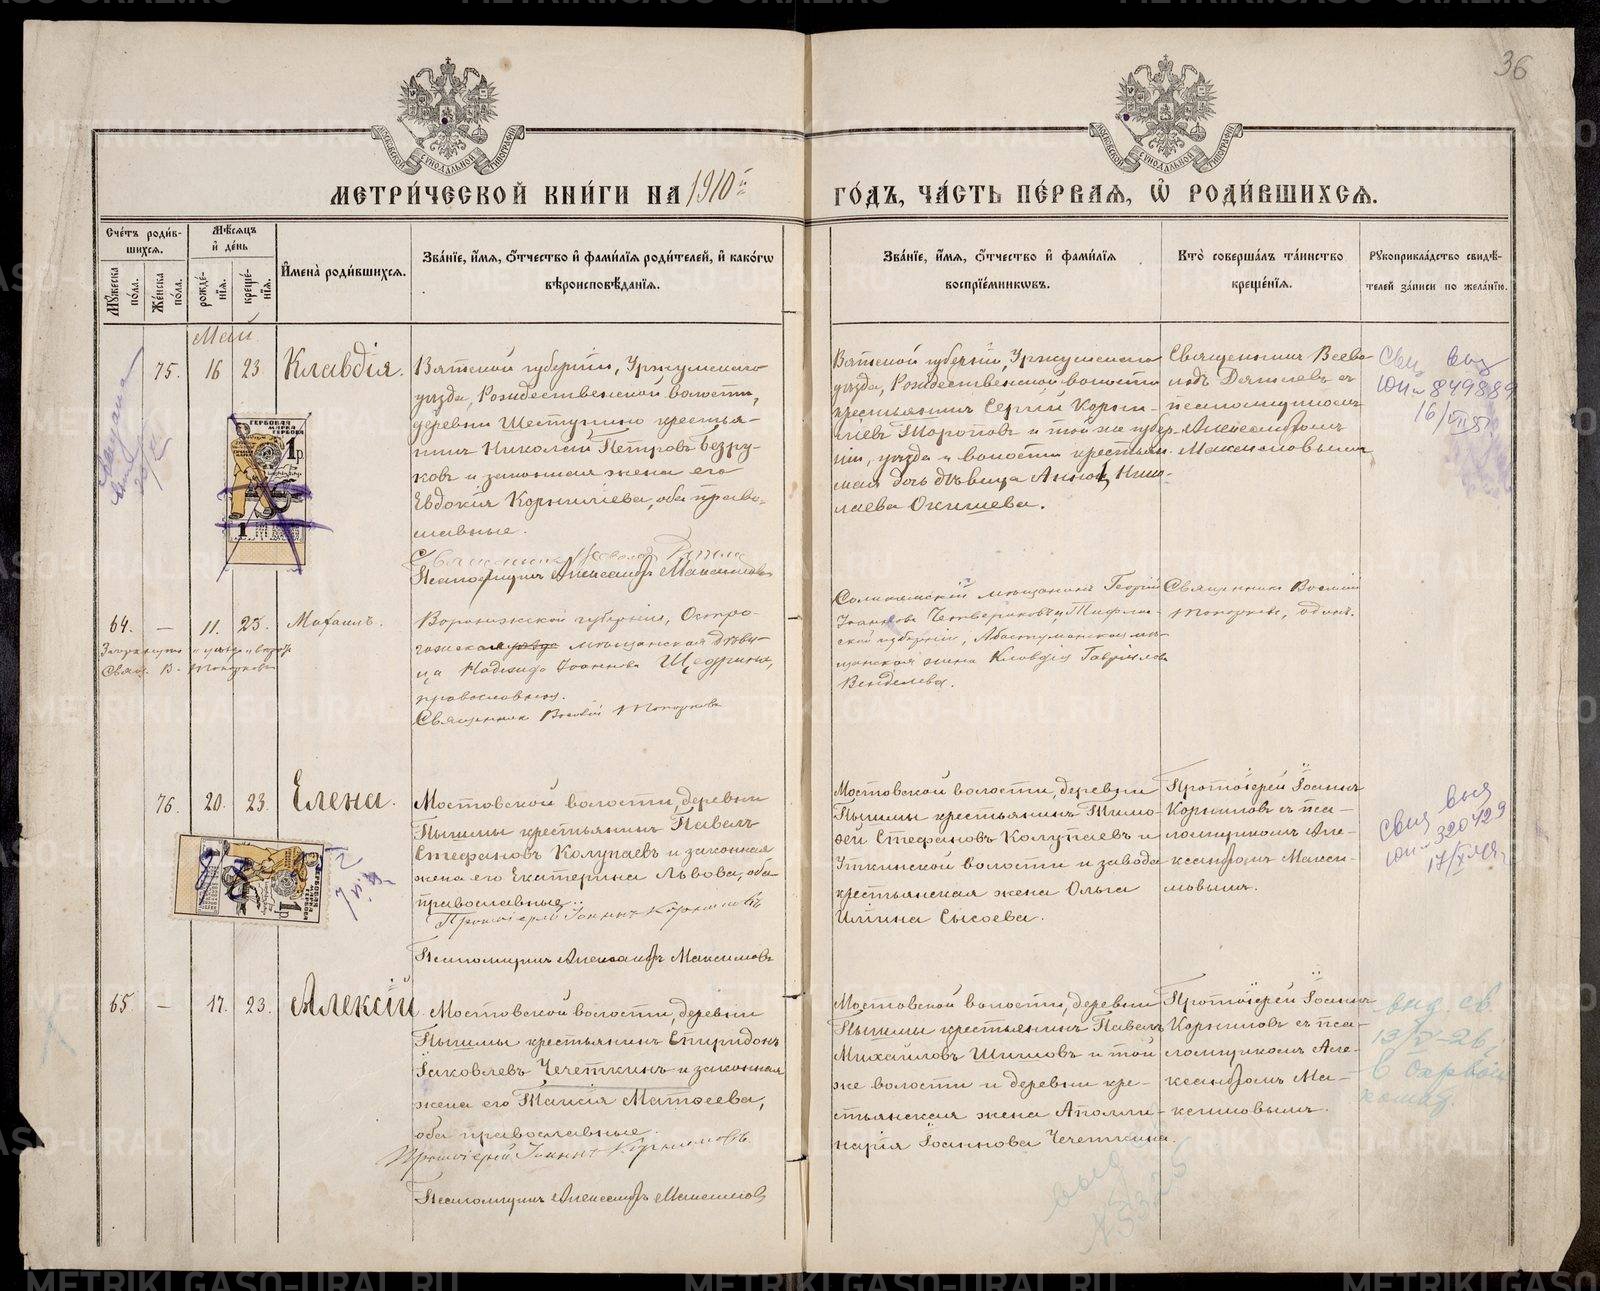 36
МЕТРИ́ЧЕСКОЙ КНИ́ГИ НА 1910й ГО́ДЪ, ЧА́СТЬ ПЕ́РВАЯ, Ѿ РОДИ́ВШИХСѦ.
Сче́тъ роди́в-
шихсѧ.
Мꙋ́жеска по́ла.
Же́нска по́ла.
Мѣ́сяцъ
и҆ де́нь
рожде́-
нїѧ.
креще́-
нїѧ.
И҆мена̀ роди́вшихсѧ.
Зва́нїе, и҆́мѧ, ѻ҆́тчество и҆ фами́лїѧ роди́телей, и҆ како́гѡ
вѣроисповѣ́данїѧ.
Зва́нїе, и҆́мѧ, ѻ҆́тчество и҆ фами́лїѧ
воспрїе́мникѡвъ.
Кто̀ соверша́лъ та́инство
креще́нїѧ.
Рꙋкоприкла́дство свидѣ́-
телей за́писи по жела́нїю.
Май
75. 16 23 Клавдія.
Вятской губерніи, Уржумского
уѣзда, Рождественской волости,
деревни Шестунино крестья-
нинъ Николай Петровъ Безру-
ковъ и законная жена его
Евдокія Корниліева, оба право-
славные.
Псаломщикъ Александръ Максимовъ
Вятской губерніи, Уржумского
уѣзда, Рождественской волости
крестьянинъ Сергій Корни-
ліевъ Тороповъ и той же губер-
ніи, уѣзда и волости крестьян-
ская дочь дѣвица Анна Нико-
лаева Окишева.
Священникъ Всево-
лодъ съ
псаломщикомъ
Александромъ
Максимовымъ
Свид выд
ЮН № 849889
16/VII 51
ГЕРБОВАЯ
МАРКА
1 р
1
64. — 11. 23. Михаилъ.
Свящ. В. Топорковъ
Воронежской губерніи, Остро-
гожская мѣщанская дѣви-
ца Надежда Іоаннова Щедрина,
православная.
Священникъ Топорковъ
Соликамскій мѣщанинъ Георгій
Іоанновъ Четвериковъ и Тифлис-
ской губерніи, Абастуманская мѣ-
щанская жена Клавдія Гаврілова
Венделева.
Священникъ
Топорковъ, одинъ.
76. 20. 23. Елена.
Мостовской волости, деревни
Пышмы крестьянинъ Павелъ
Стефановъ Колупаевъ и законная
жена его Екатерина Львова, оба
православные.
Протоіерей Іоаннъ Корниловъ
Псаломщикъ Александръ Максимовъ
Мостовской волости, деревни
Пышмы крестьянинъ Тимо-
фей Стефановъ Колупаевъ и
Уткинской волости и завода
крестьянская жена Ольга
Ильина Сысоева.
Протоіерей Іоаннъ
Корниловъ съ пса-
ломщикомъ Але-
ксандромъ Макси-
мовымъ.
Свид выд
ЮН № 320429
65. — 17. 23. Алексій.
Мостовской волости, деревни
Пышмы крестьянинъ Спиридонъ
Іаковлевъ Чечеткинъ и законная
жена его Таисія Матѳеева,
оба православные.
Протоіерей Іоаннъ Корниловъ
Псаломщикъ Александръ Максимовъ
Мостовской волости, деревни
Пышмы крестьянинъ Павелъ
Михайловъ Шишовъ и той
же волости и деревни кре-
стьянская жена Аполли-
нарія Іоаннова Чечеткина.
Протоіерей Іоаннъ
Корниловъ съ пса-
ломщикомъ Але-
ксандромъ Ма-
ксимовымъ.
выд. св.
13/V-26
METRIKI.GASO-URAL.RU